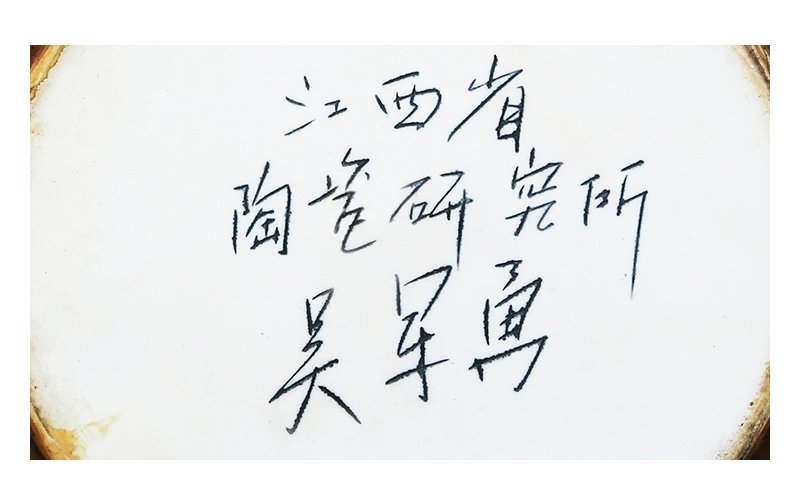 江西省
陶瓷研究所
吴勇